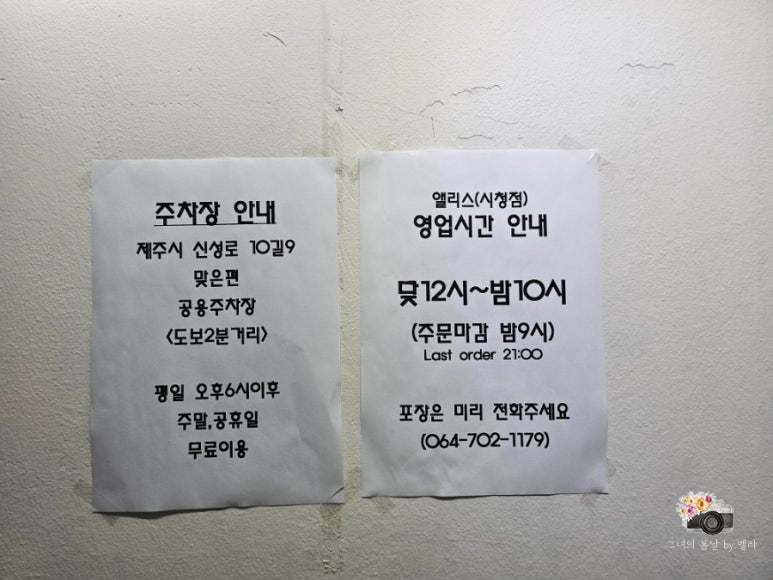 주차장 안내
제주시 신성로 10길9
맞은편
공용주차장
<도보2분거리>
평일 오후6시이후
주말,공휴일
무료이용
앨리스(시청점)
영업시간 안내
낮12시~밤10시
(주문마감 밤9시)
Last order 21:00
포장은 미리 전화주세요
(064-702-1179)
그녀의 봄날 by 벨라